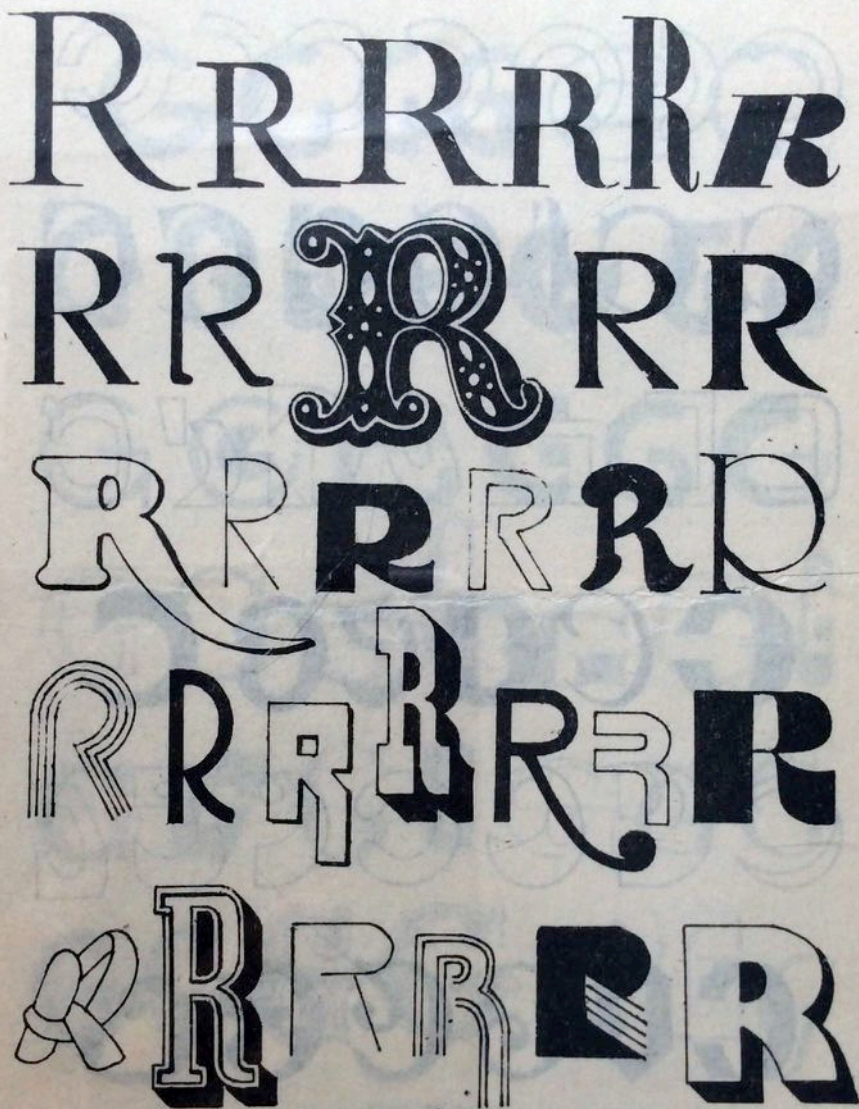 R R R R R R
R R R R R
R R R R R R
R R R R R R R
R R R R R R